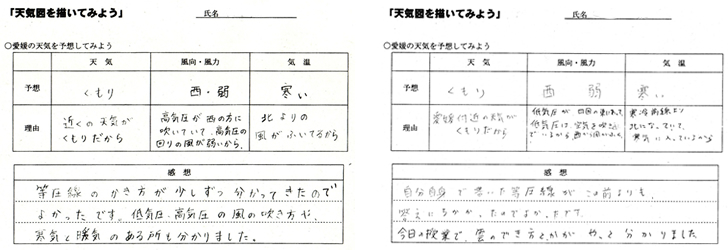 「天気図を描いてみよう」
氏名
○愛媛の天気を予想してみよう
天気 風向・風力 気温
予想 くもり 西・弱 寒い
理由
近くの天気が
くもりだから
高気圧が西の方に
吹いていて、高気圧の
回りの風が弱いから。
北よりの
風がふいてるから
感想
等圧線のかき方が少しずつ分かってきたので
よかったです。低気圧、高気圧の風の吹き方や、
寒気と暖気のある所も分かりました。
「天気図を描いてみよう」
氏名
○愛媛の天気を予想してみよう
天気 風向・風力 気温
予想 くもり 西 弱 寒い
理由
愛媛付近の天気が
くもりだから
低気圧が四国の
低気圧は、空気を
寒冷前線より
北になっていて、
寒気に入っているから
感想
自分自身で書いた等圧線がこの前よりも、
答えにちかかったのでよかったです。
今日の授業で、雲のでき方とかがやっと分かりました